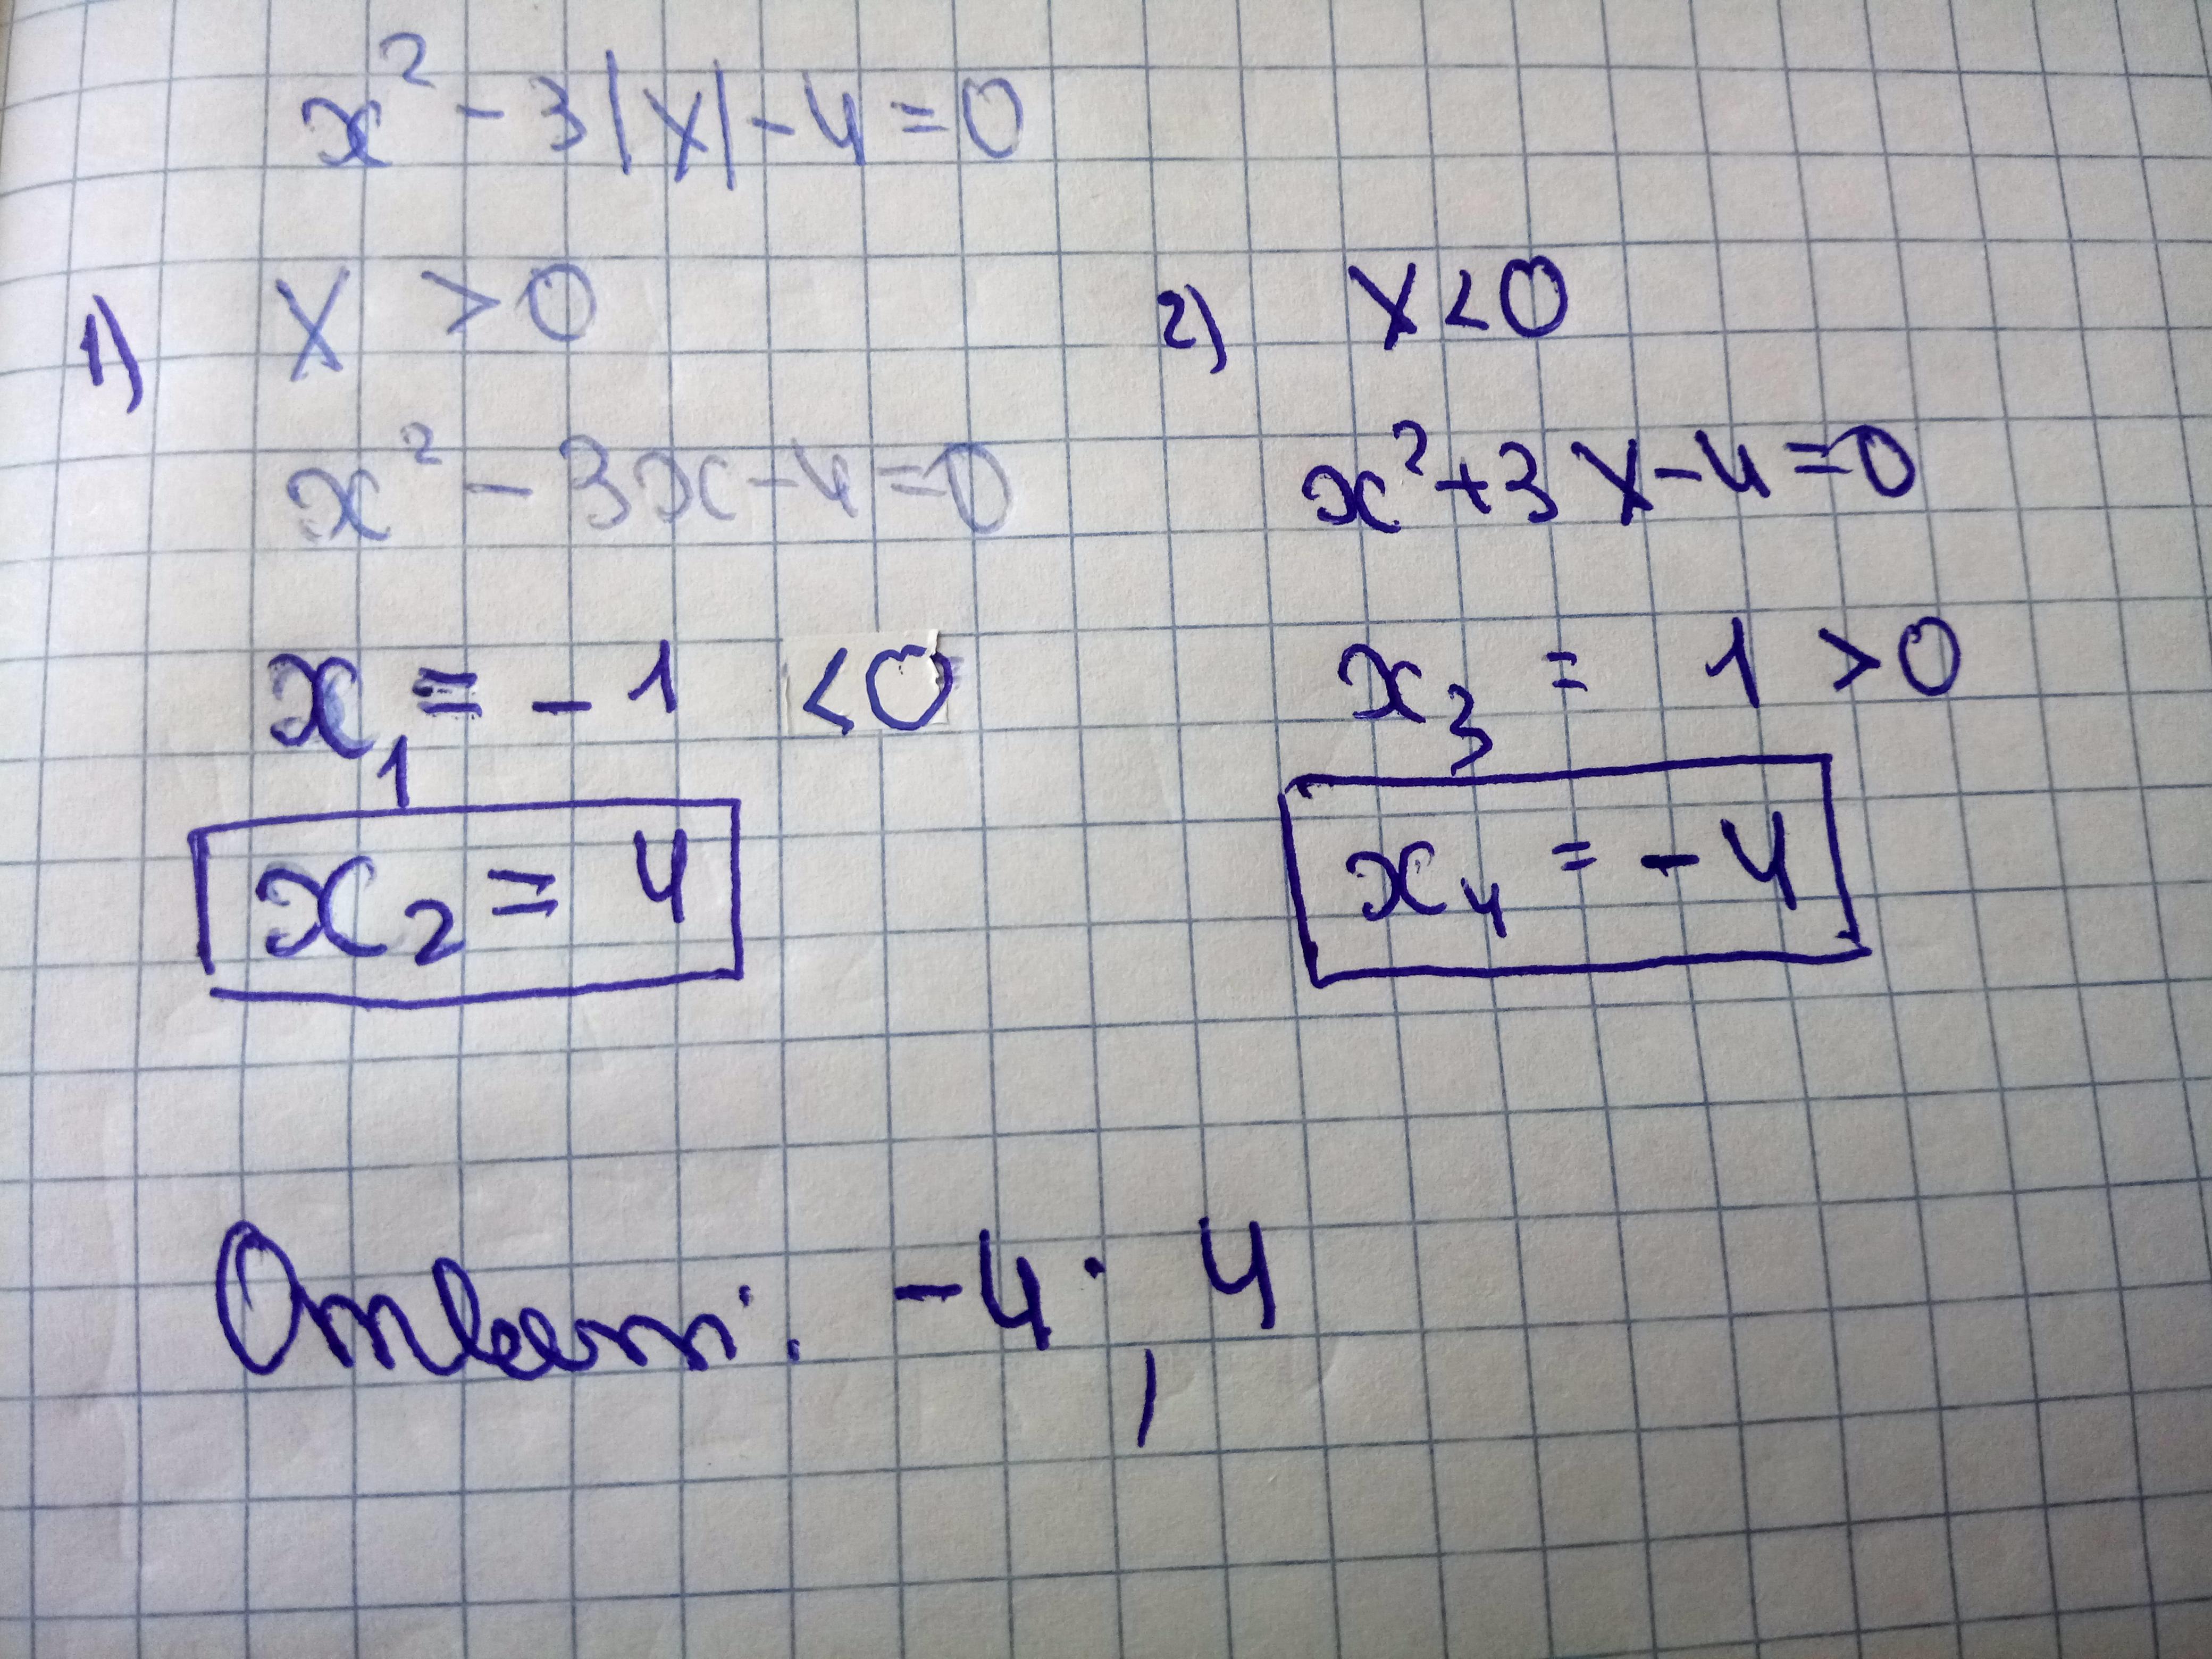 x² - 3|x| - 4 = 0
1) x > 0
x² - 3x - 4 = 0
x₁ = -1 < 0
x₂ = 4
2) x < 0
x² + 3x - 4 = 0
x₃ = 1 > 0
x₄ = -4
Ответ: -4; 4